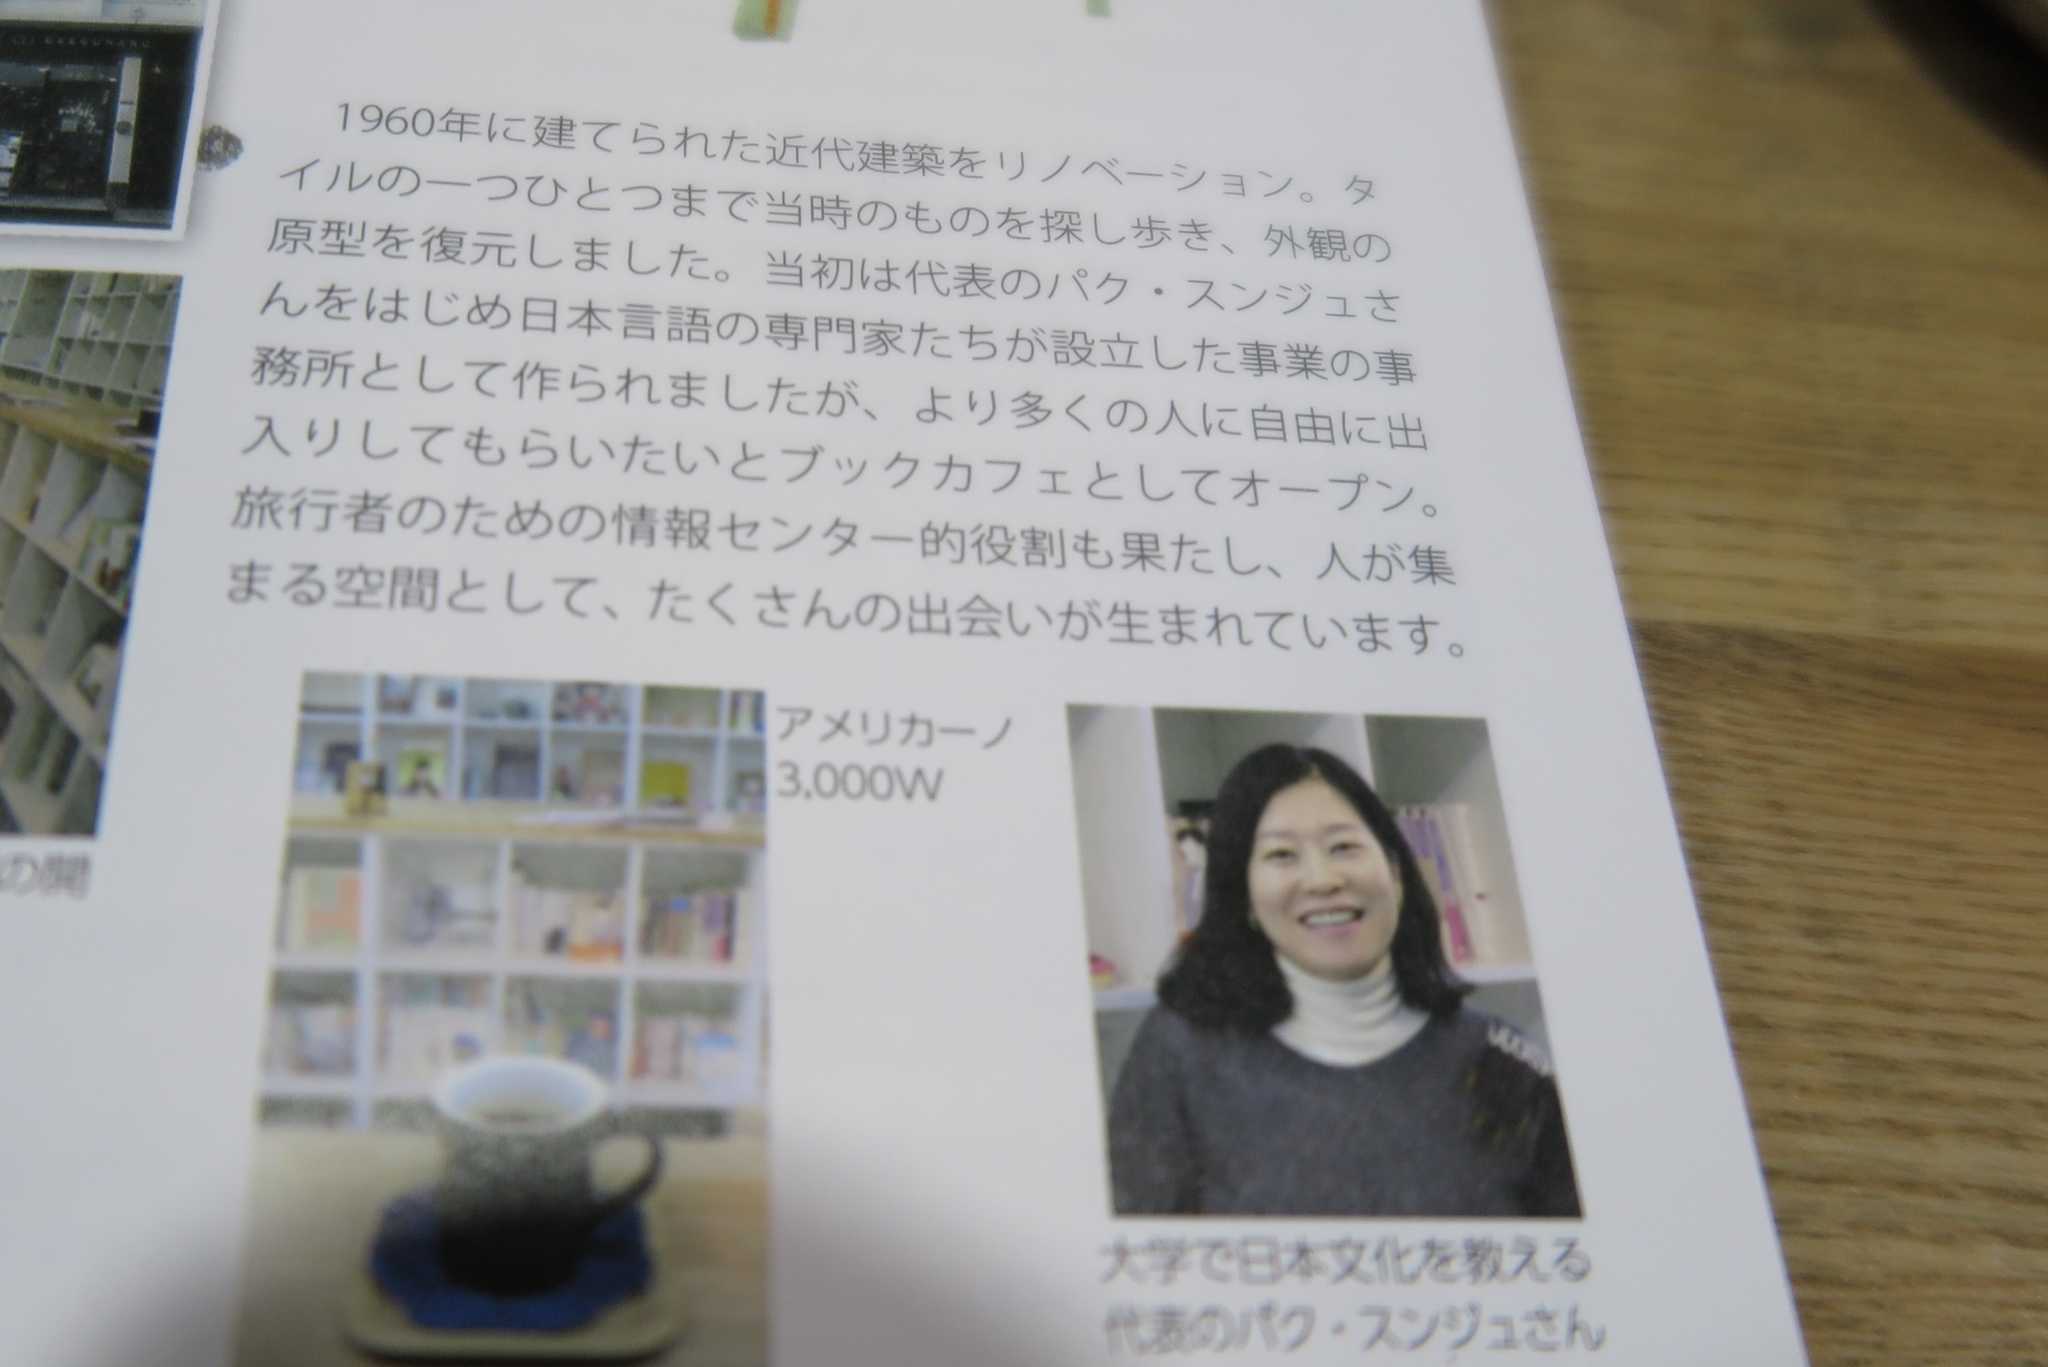 1960年に建てられた近代建築をリノベーション。タ
イルの一つひとつまで当時のものを探し歩き、外観の
原型を復元しました。当初は代表のパク・スンジュさ
んをはじめ日本言語の専門家たちが設立した事業の事
務所として作られましたが、より多くの人に自由に出
入りしてもらいたいとブックカフェとしてオープン。
旅行者のための情報センター的役割も果たし、人が集
まる空間として、たくさんの出会いが生まれています。
アメリカーノ
3,000W
の開
大学で日本文化を教える
代表のパク・スンジュさん